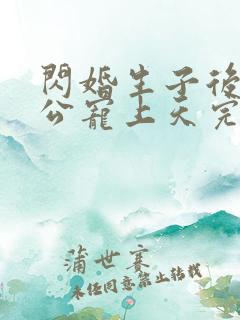 閃婚生子後
公寵上天完
蒲世寒
未任同意禁止転載